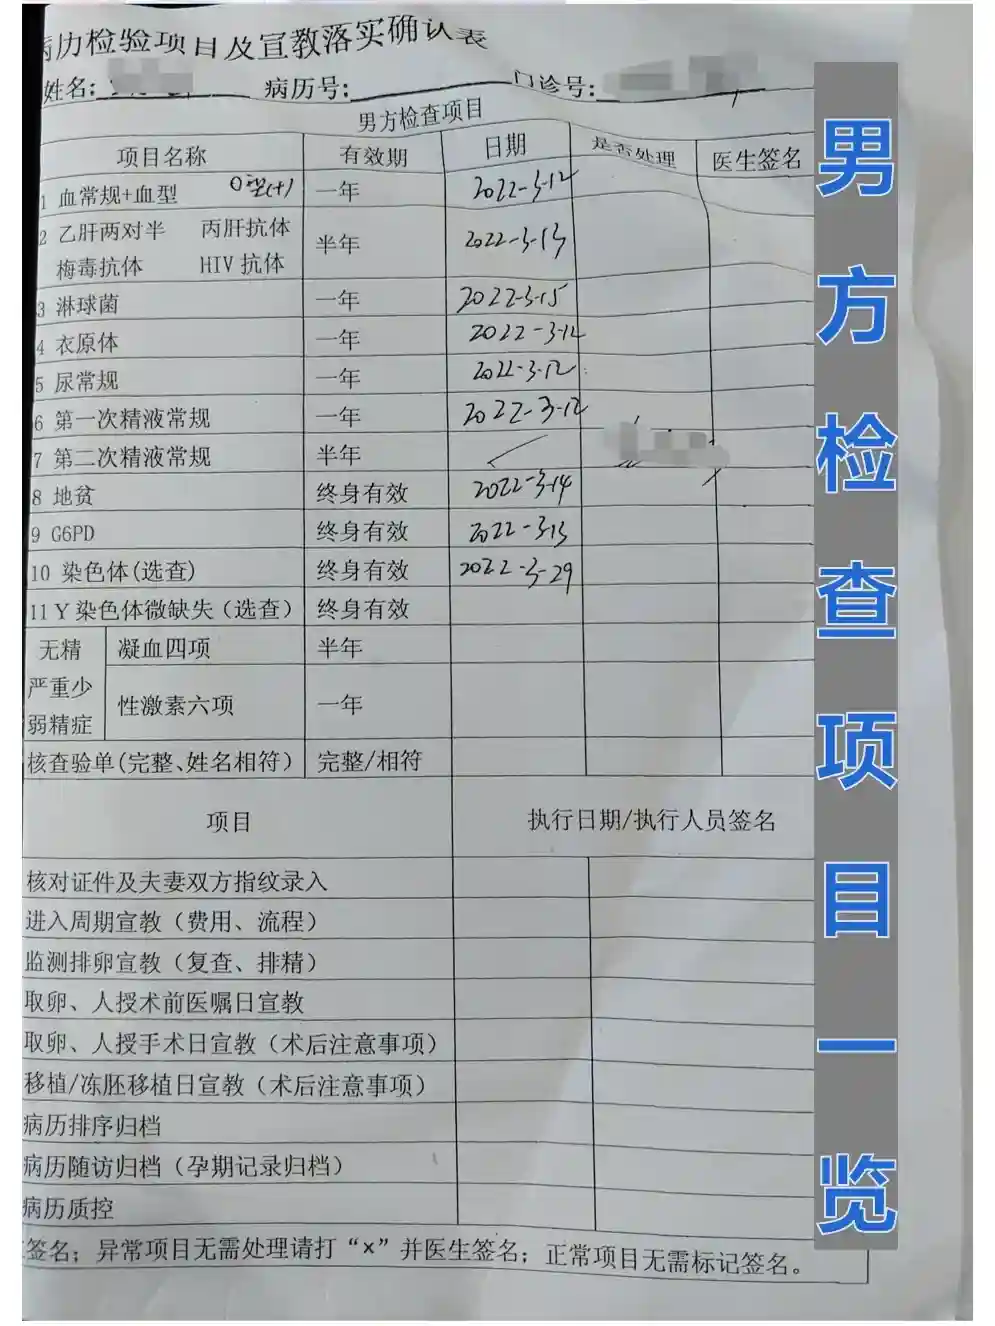 病历检验项目及宣教落实确认表
姓名: 病历号: 门诊号:
男方检查项目
项目名称 有效期 日期 是否处理 医生签名
1 血常规+血型 O型(+) 一年 2022-3-12
2 乙肝两对半 丙肝抗体
梅毒抗体 HIV 抗体 半年 2022-3-13
3 淋球菌 一年 2022-3-15
4 衣原体 一年 2022-3-12
5 尿常规 一年 2022-3-12
6 第一次精液常规 一年 2022-3-12
7 第二次精液常规 半年
8 地贫 终身有效 2022-3-14
9 G6PD 终身有效 2022-3-13
10 染色体(选查) 终身有效 2022-3-29
11 Y 染色体微缺失（选查） 终身有效
无精
严重少
弱精症
凝血四项 半年
性激素六项 一年
核查验单(完整、姓名相符) 完整/相符
项目 执行日期/执行人员签名
核对证件及夫妻双方指纹录入
进入周期宣教（费用、流程）
监测排卵宣教（复查、排精）
取卵、人授术前医嘱日宣教
取卵、人授手术日宣教（术后注意事项）
移植/冻胚移植日宣教（术后注意事项）
病历排序归档
病历随访归档（孕期记录归档）
病历质控
签名；异常项目无需处理请打“×”并医生签名；正常项目无需标记签名。
男方检查项目一览